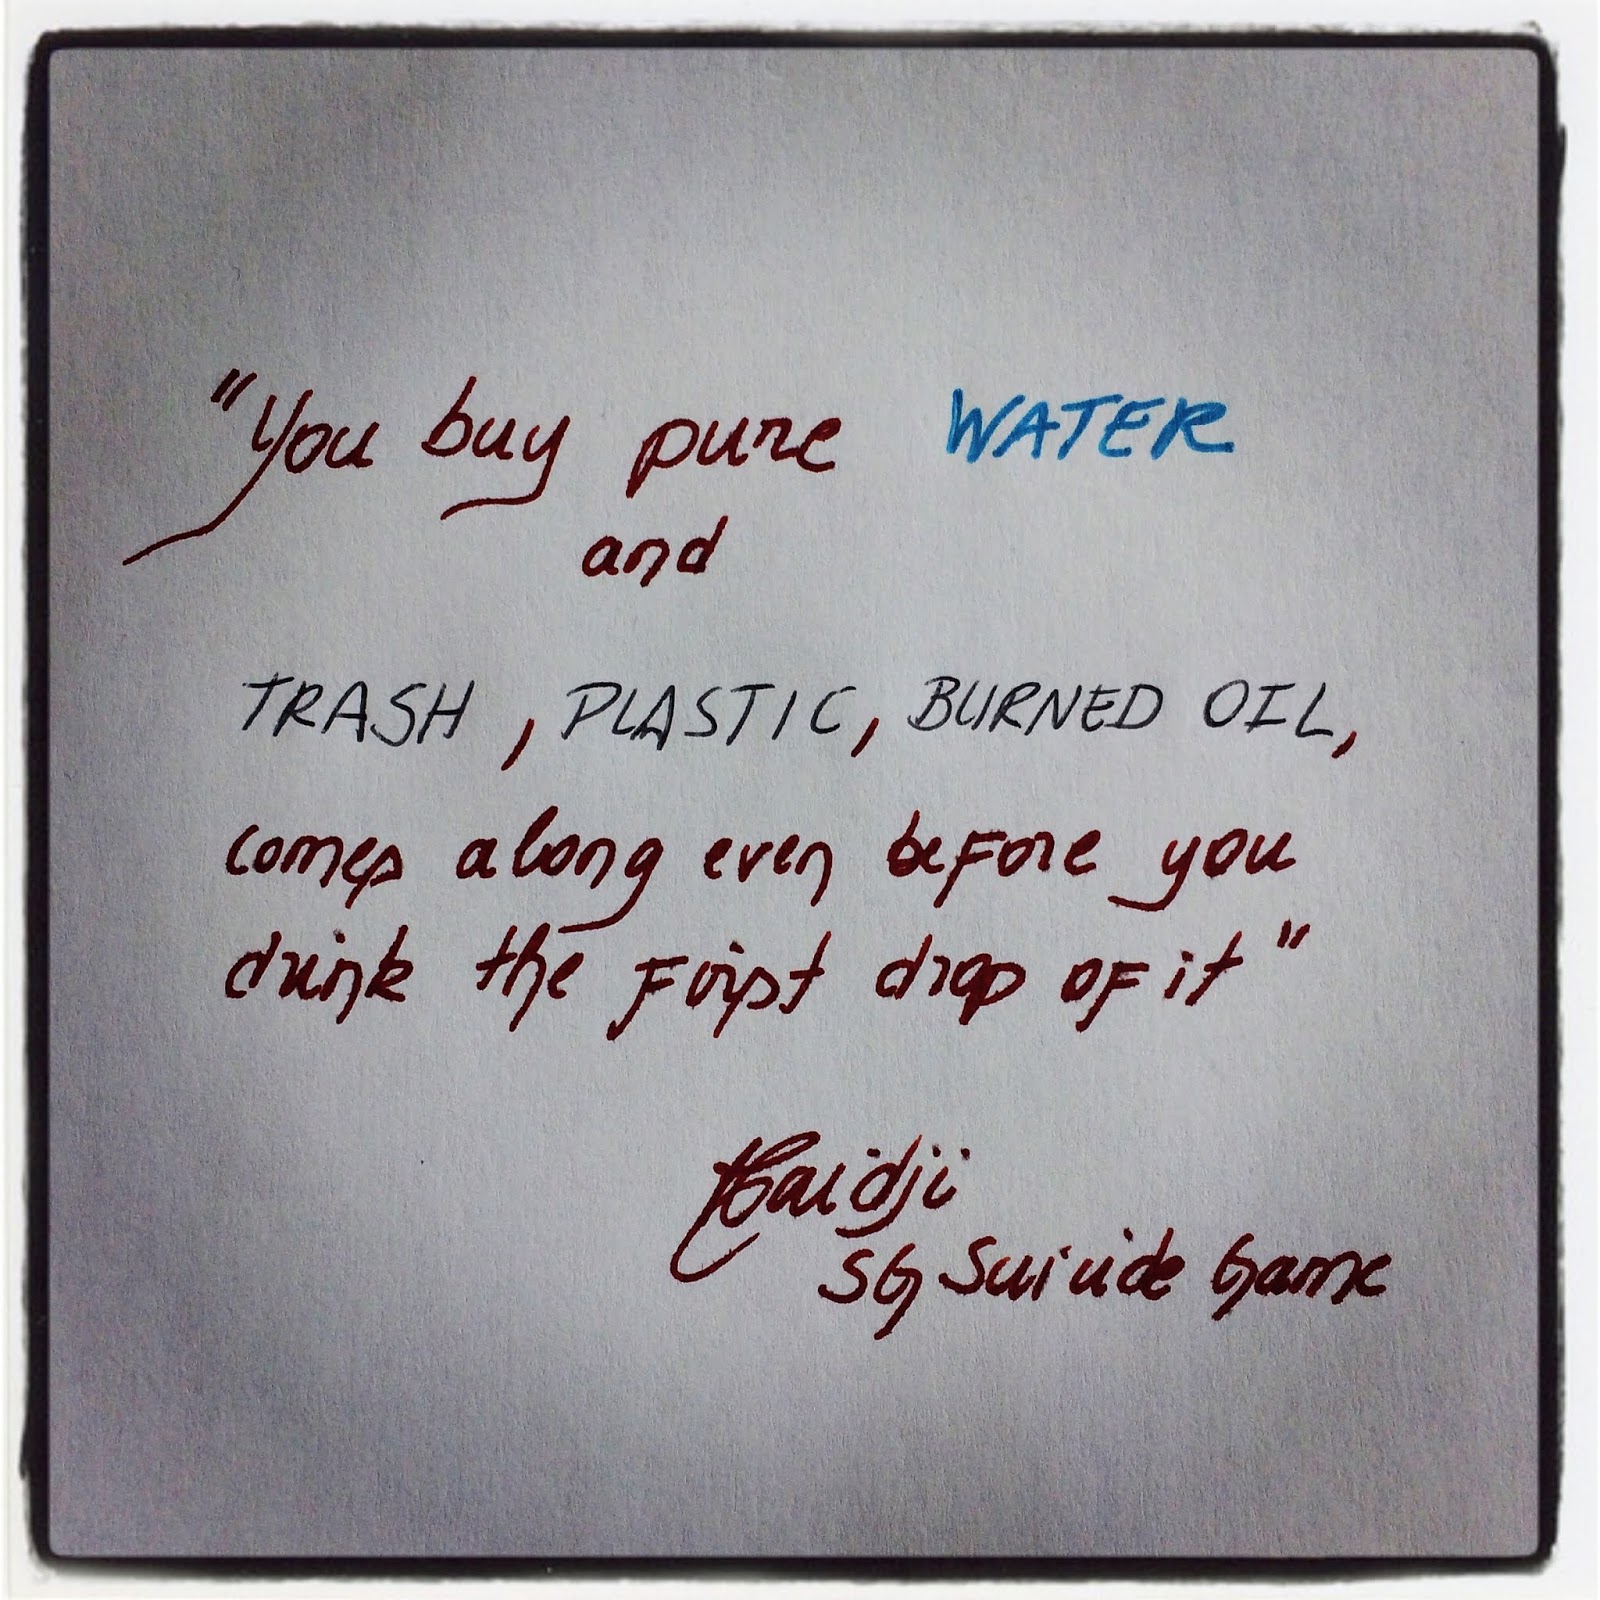 "You buy pure WATER
and
TRASH, PLASTIC, BURNED OIL,
comes along even before you
drink the first drop of it"
Haidji
SG Suicide Game